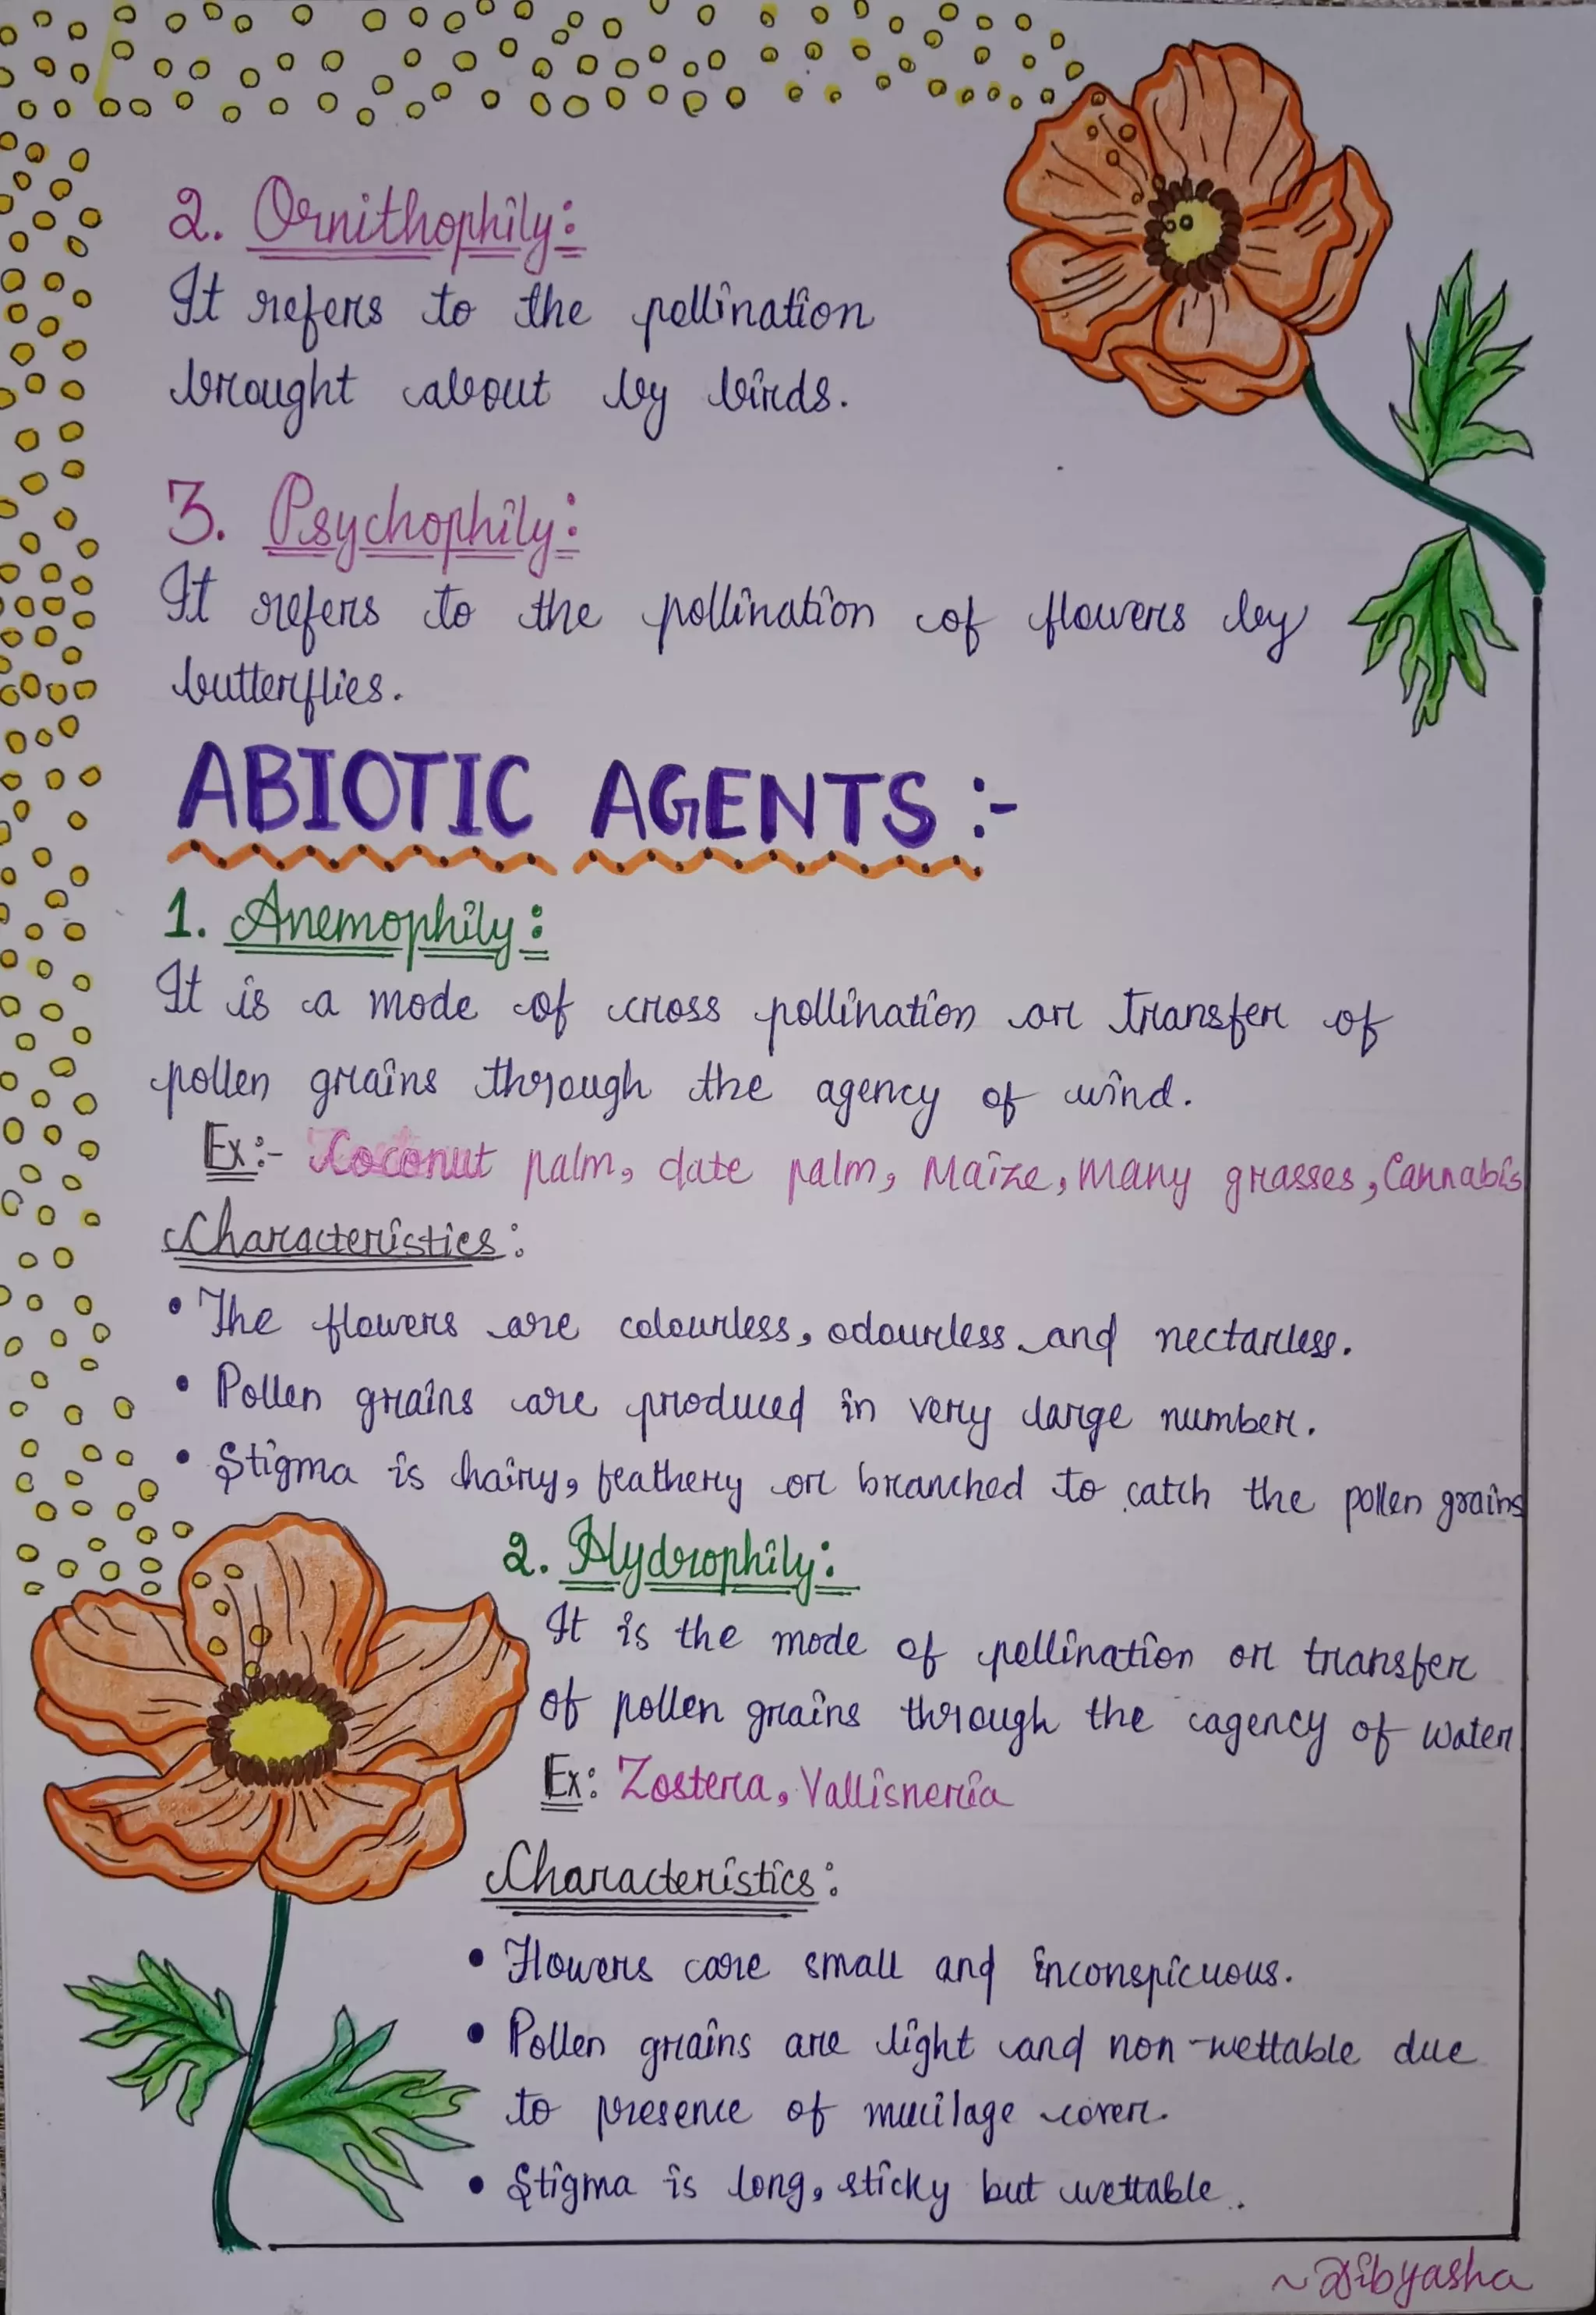 2. Ornithophily:
It refers to the pollination
brought about by birds.
3. Psychophily:
It refers to the pollination of flowers by
butterflies.
ABIOTIC AGENTS :-
1. Anemophily:
It is a mode of cross pollination or transfer of
pollen grains through the agency of wind.
Ex:- Coconut palm, date palm, Maize, many grasses, Cannabis
Characteristics:
• The flowers are colourless, odourless and nectarless.
• Pollen grains are produced in very large number.
• Stigma is hairy, feathery or branched to catch the pollen grains
2. Hydrophily:
It is the mode of pollination or transfer
of pollen grains through the agency of water
Ex: Zostera, Vallisneria
Characteristics:
• Flowers are small and inconspicuous.
• Pollen grains are light and non-wettable due
to presence of mucilage cover.
• Stigma is long, sticky but wettable.
~Dibyasha